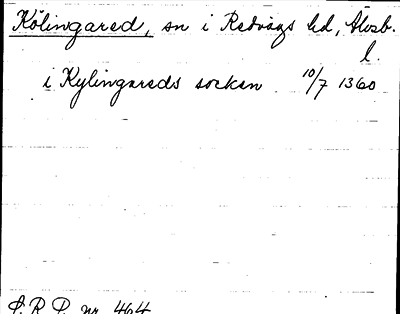 Kölingared, sn i Redvägs hd, Älvsb.
l.
i Kylingareds socken 10/7 1360
S.R.P. nr 464